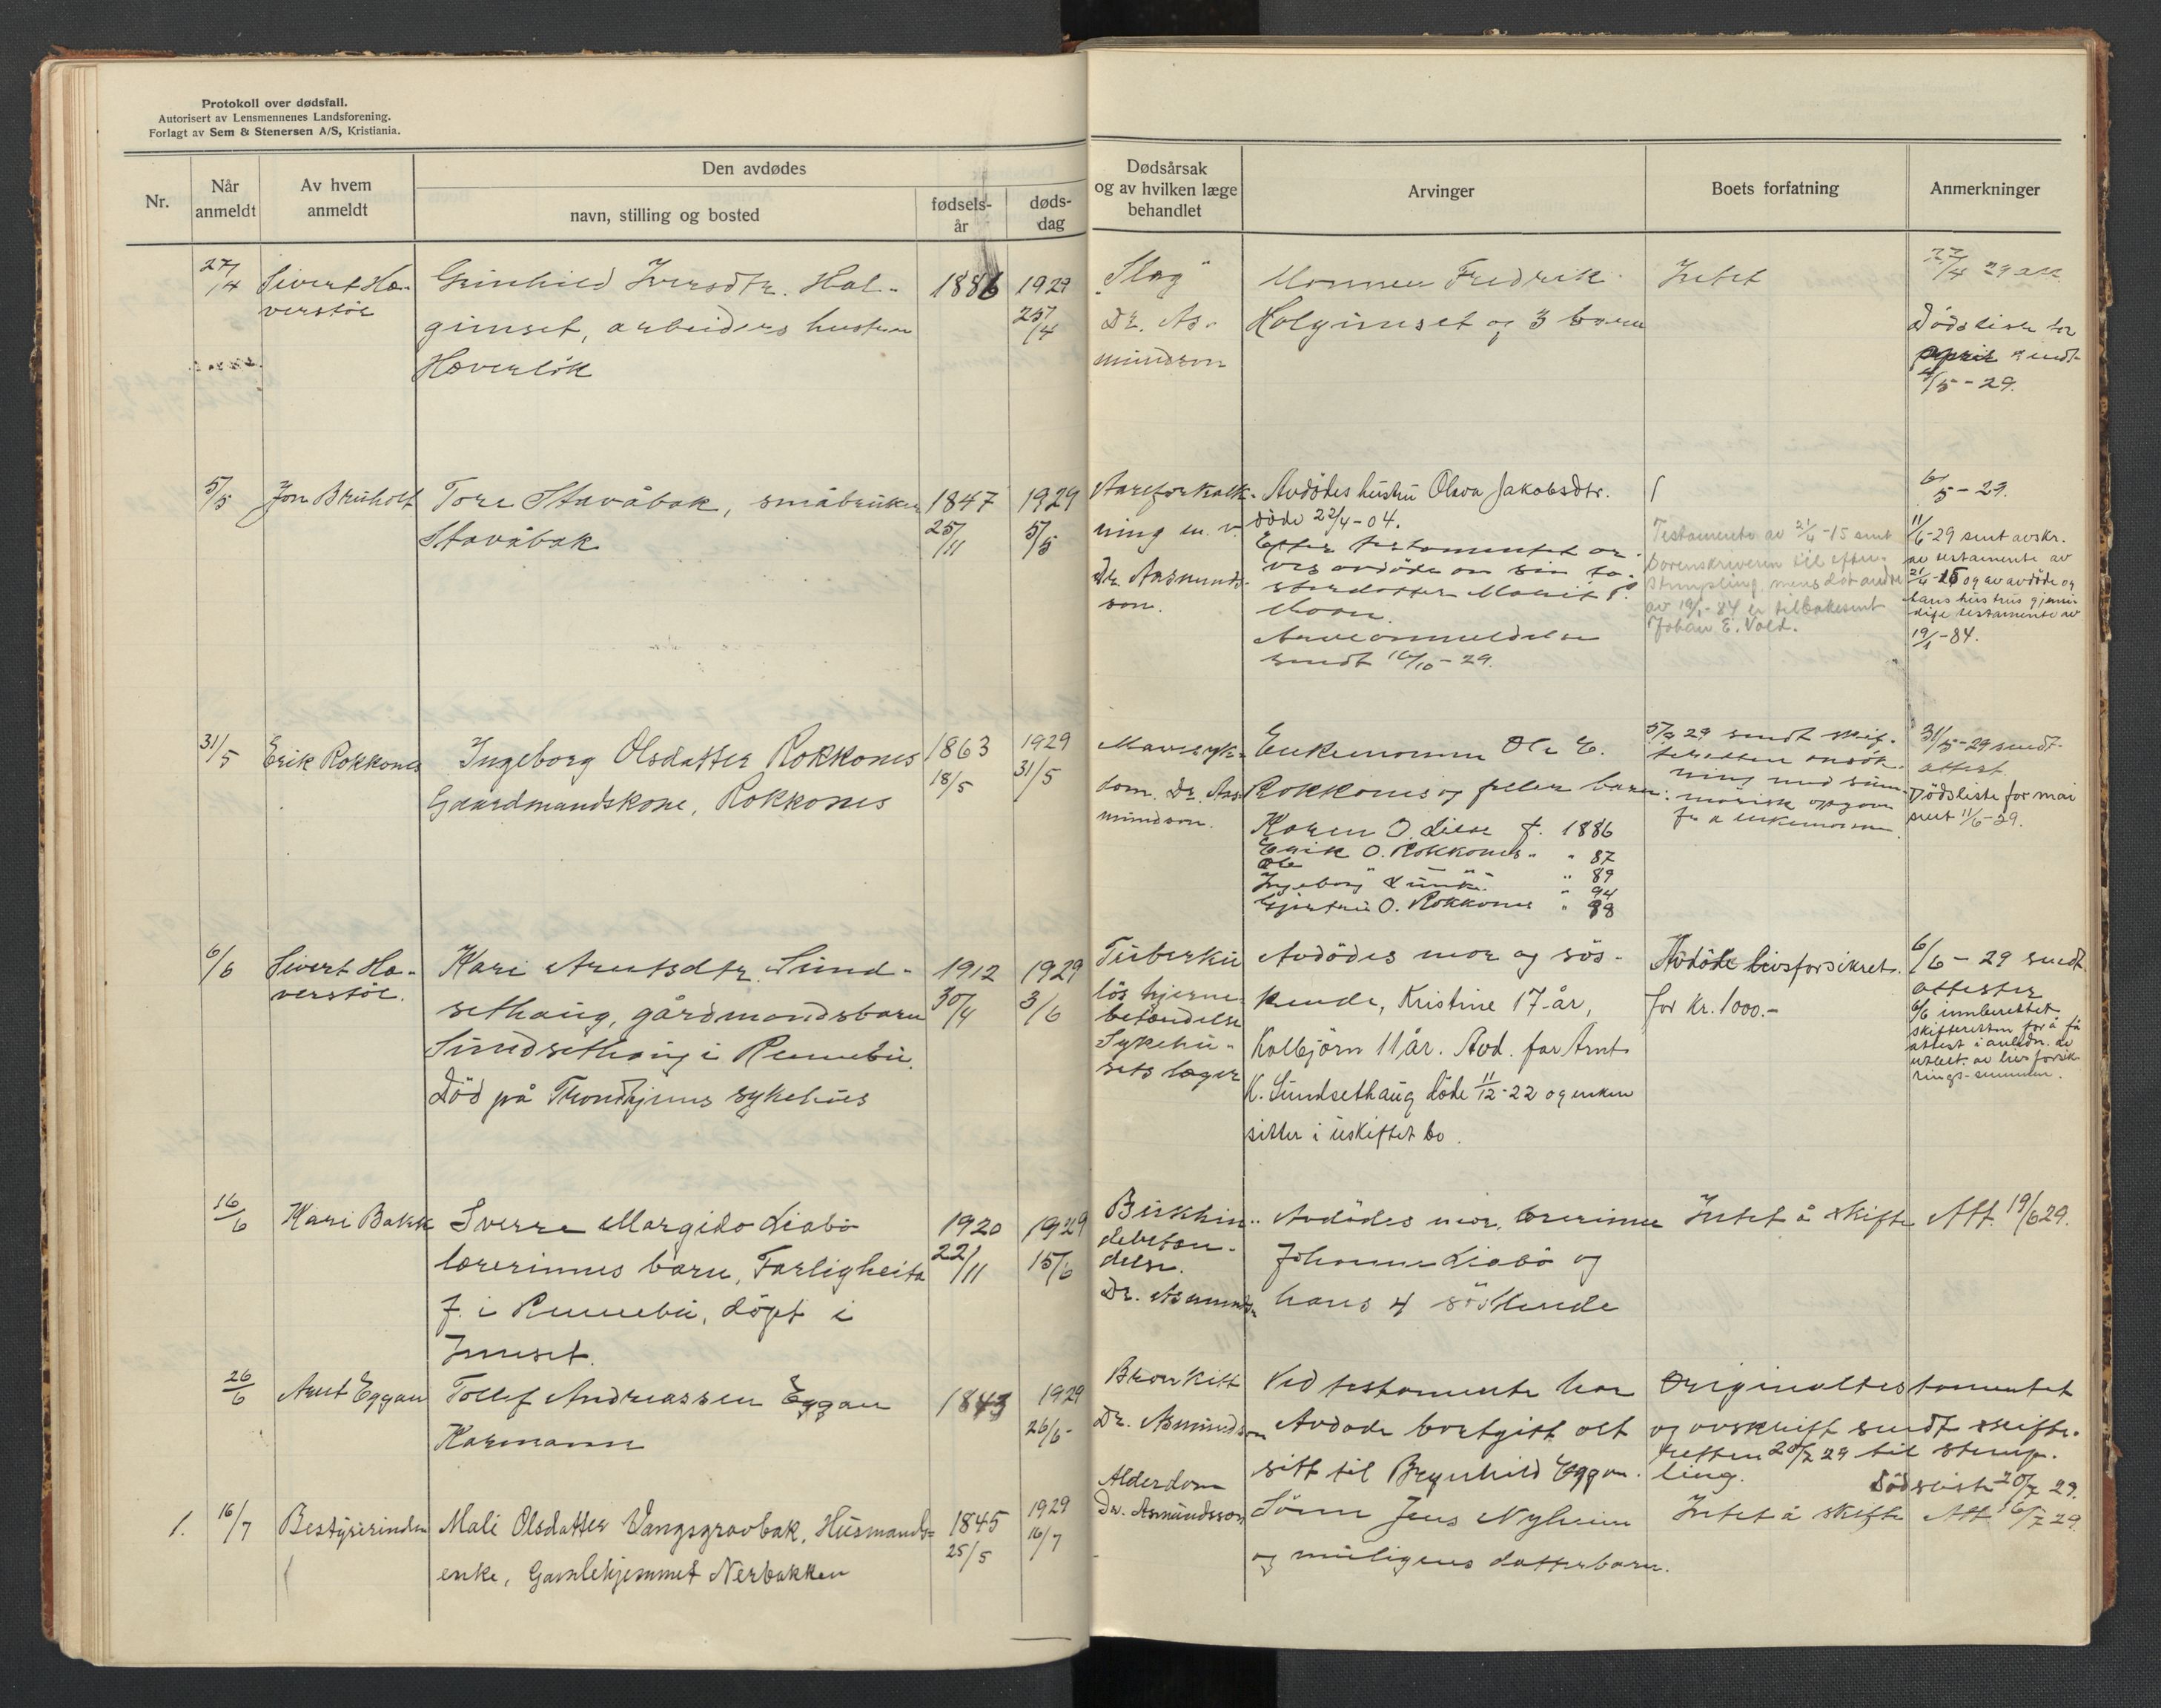 Protokoll over dødsfall.
Autorisert av Lensmennenes Landsforening.
Forlagt av Sem & Stenersen A/S, Kristiania.
Nr.
Når
anmeldt
Av hvem
anmeldt
Den avdødes
navn, stilling og bosted
fødsels-
år
døds-
dag
Dødsårsak
og av hvilken læge
behandlet
Arvinger
Boets forfatning
Anmerkninger
27/4
Sivert Hæ-
verstöl
Gunhild Iversdtr. Hal-
gimset, arbeiders hustru
Hæverlök
1886
1929
25/4
"Slag"
Dr. As-
mundson
Mannen Fredrik
Halgimset og 3 barn
Intet
27/4 29 att.
Dödsliste for
april sendt
4/5-29.
5/5
Jon Bruholt
Tore Stavåbak, småbruker
Stavåbak
1847
25/11
1929
5/5
Aareforkalk-
ning m. v.
Dr. Aasmunds-
son.
Avdödes hustru Olava Jakobsdtr.
döde 22/4-04.
Efter testamentet ar-
ves avdöde av sin sö-
sterdatter Marit P.
Moan.
Arveanmeldelse
sendt 16/10-29.
Testamente av 21/4-15 sendt
Sorenskriveren til efter-
stempling mens det andre
av 19/1-84 er tilbakesent
Johan E. Vold.
6/5-29.
11/6-29 sent avskr.
av testamente av
21/4-15 og av avdöde og
hans hustrus gjensi-
dige testamente av
19/1-84.
31/5
Erik Rokkones
Ingeborg Olsdatter Rokkones
Gaardmandskone, Rokkones
1863
18/5
1929
31/5
Mavesyk-
dom. Dr. Aas-
mundson.
Enkemann Ole E.
Rokkones og felles barn:
Karen O. Liese f. 1886
Erik O. Rokkones " " 87
Ole " " " 89
Ingeborg " " 94
Gjertrud O. Rokkones " 98
5/7 29 sendt skif-
teretten ansök-
ning med sum-
marisk opgave
fra enkemannen.
31/5-29 sendt
attest.
Dödsliste for mai
sent 11/6-29.
6/6
Sivert Hæ-
verstöl.
Kari Arntsdtr. Sund-
sethaug, gårdmandsbarn
Sundsethaug i Rennebu.
Död på Trondhjems sykehus
1912
30/4
1929
3/6
Tuberku
lös hjerne-
betændelse
Sykehu-
sets læger
Avdödes mor og sös-
kende, Kristine 17 år,
Kolbjörn 11 år. Avd. far Arnt
K. Sundsethaug döde 11/12-22 og enken
sitter i uskiftet bo.
Avdöde livsforsikret
for kr. 1000.-
6/6-29 sendt
attester
6/6 innberettet
skifteretten for å få
attest i anledn. av
utbet. av livsforsik-
rings-summen.
16/6
Kari Bakk
Sverre Margido Liabö
lærerinnes barn, Farligheita
f. i Rennebu, döpt i
Innset.
1920
22/11
1929
15/6
Bukhin-
debetæn-
delse.
Dr. Asmunds.
Avdödes mor, lærerinne
Johanne Liabö og
hans 4 söskende
Intet å skifte
Att. 19/6 29.
26/6
Arnt Eggan
Tollef Andreassen Eggan
Kårmann
1843
1929
26/6
Bronkitt
Dr. Asmundson
Ved testamente har
Avdöde bortgitt alt
sitt til Brynhild Eggan.
Originaltestamentet
og avskrift sendt skifte-
retten 20/7 29 til stemp-
ling.
Dödsliste 20/7 29.
1.
16/7
Bestyrerinden
Mali Olsdatter Vangsgravbak, Husmands-
enke, Gamlehjemmet Nerbakken
1845
25/5
1929
16/7
Alderdom
Dr. Asmundsson
Sönn Jens Nyheim
og muligens datterbarn.
Intet å skifte
Att. 16/7 29.